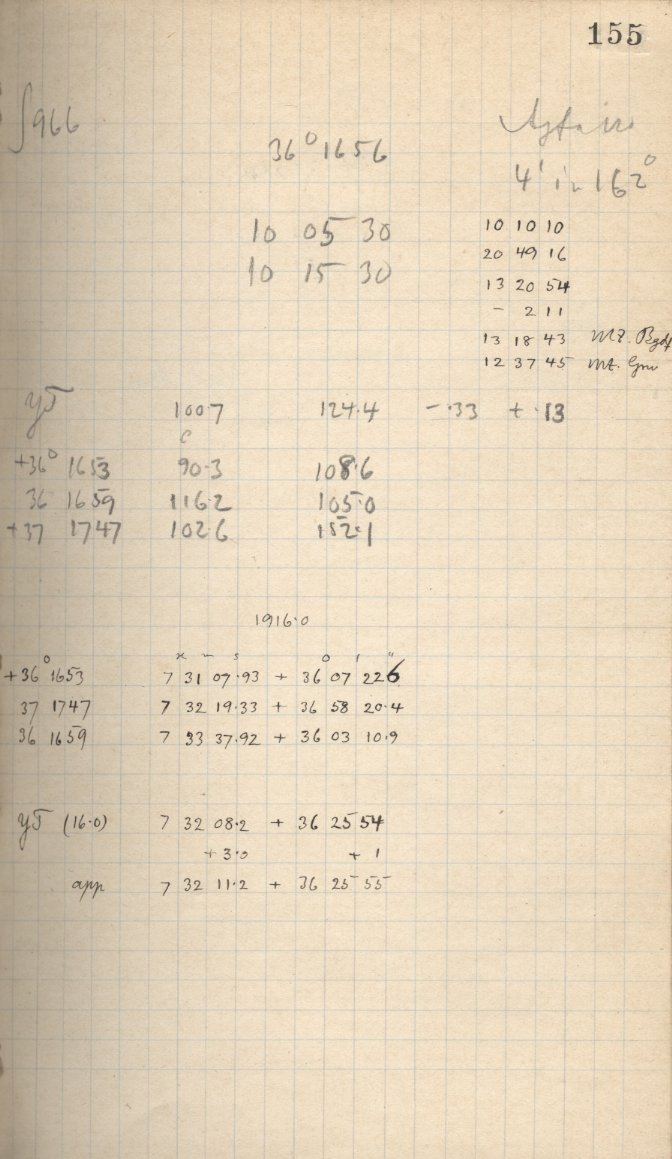 155
∫966
36° 1656
4' in 162°
10 05 30
10 15 30
10 10 10
20 49 16
13 20 54
- 2 11
13 18 43 MZ.
12 37 45 Mt.
yT 100.7 124.4 -.33 + .13
c
+36° 1653 90.3 108.6
36 1659 116.2 105.0
+37 1747 102.6 152.1
1916.0
m s ° ' "
+36° 1653 7 31 07.93 + 36 07 22 6
37 1747 7 32 19.33 + 36 58 20.4
36 1659 7 33 37.92 + 36 03 10.9
yT (16.0) 7 32 08.2 + 36 25 54
+ 3.0 + 1
app 7 32 11.2 + 36 25 55